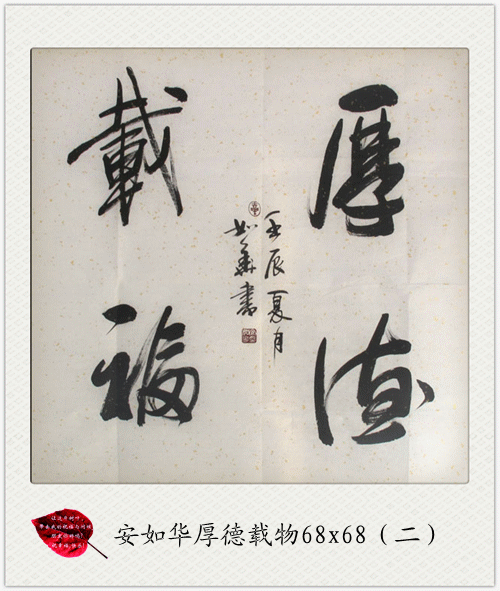 厚德
載福
壬辰夏月
如華書
安如华厚德载物68x68（二）